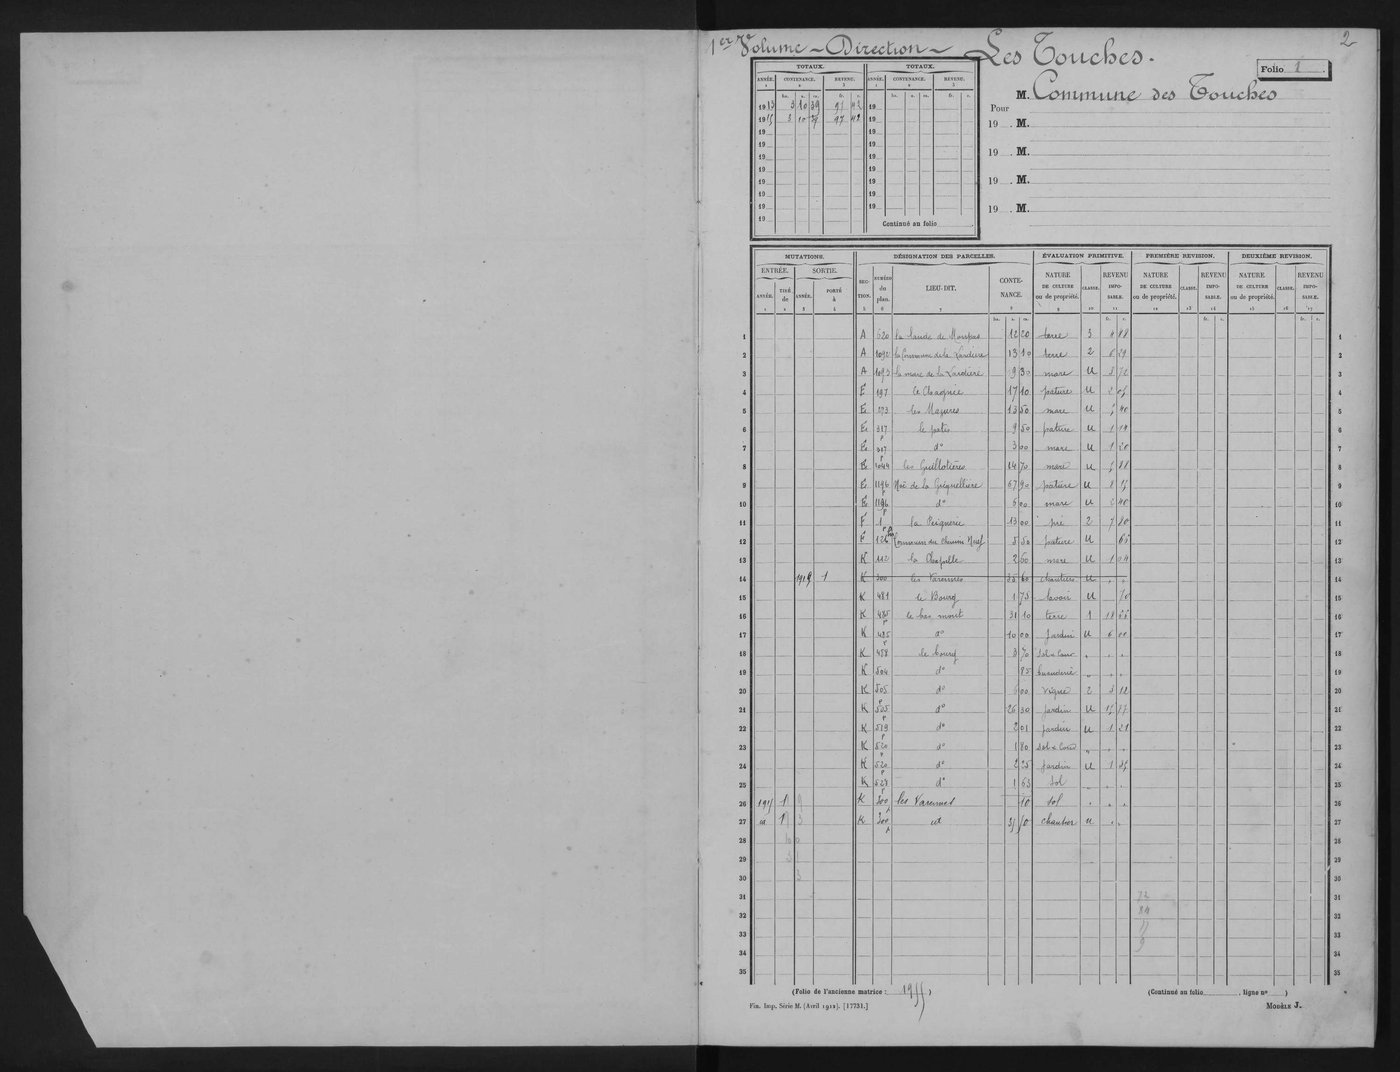 1er Volume - Direction - Les Touches.
2
Folio 1.
TOTAUX. TOTAUX.
ANNÉE. CONTENANCE. REVENU. ANNÉE. CONTENANCE. REVENU.
1 2 3 1 2 3
ha. a. ca. fr. c. ha. a. ca. fr. c.
1913 3 10 39 97 42 19
1915 3 10 39 97 42 19
19 19
19 19
19 19
19 19
19 19
19 19
19 19
19 Continué au folio
Pour M. Commune des Touches
19 . M.
19 . M.
19 . M.
19 . M.
MUTATIONS. DÉSIGNATION DES PARCELLES. ÉVALUATION PRIMITIVE. PREMIÈRE REVISION. DEUXIÈME REVISION.
ENTRÉE. SORTIE.
ANNÉE. TIRÉ de ANNÉE. PORTÉ à SECTION. NUMÉRO du plan. LIEU-DIT. CONTENANCE. NATURE DE CULTURE ou de propriété. CLASSE. REVENU IMPOSABLE. NATURE DE CULTURE ou de propriété. CLASSE. REVENU IMPOSABLE. NATURE DE CULTURE ou de propriété. CLASSE. REVENU IMPOSABLE.
1 2 3 4 5 6 7 8 9 10 11 12 13 14 15 16 17
ha. a. ca. fr. c. fr. c. fr. c.
1 A 620 la lande de 12 20 terre 3 4 88 1
2 A 1092 la Commune de la Lardière 13 10 terre 2 6 29 2
3 A 1093 la mare de la Lardière 9 30 mare U 3 72 3
4 E 197 17 10 pature U 2 05 4
5 E 273 les Mazures 13 50 mare U 5 40 5
6 E 317 p le patis 9 50 pature U 1 14 6
7 E 317 p do 3 00 mare U 1 20 7
8 E 1044 les Guillotières 14 70 mare U 5 88 8
9 E 1196 p Noë de la 67 90 pature U 8 15 9
10 E 1196 p do 6 00 mare U 2 40 10
11 F 1 p la 13 00 pré 2 7 80 11
12 F Commun du chemin Neuf 5 50 pature U 66 12
13 K 112 la Chapelle 2 60 mare U 1 04 13
14 1915 1 K 300 les Varennes 35 60 chantier U " " 14
15 K 481 le Bourg 1 75 lavoir U 70 15
16 K 485 p le bas mont 31 10 terre 1 18 66 16
17 K 485 p do 10 00 jardin U 6 00 17
18 K 458 le bourg 3 70 sol & Cour " " " 18
19 K 504 do 85 buanderie " " " 19
20 K 505 p do 6 00 vigne 2 3 12 20
21 K 505 p do 26 30 jardin U 15 77 21
22 K 519 p do 2 01 jardin U 1 21 22
23 K 520 p do 1 80 sol & Cour " " " 23
24 K 520 p do 2 25 jardin U 1 35 24
25 K 528 p do 1 63 sol " " " 25
26 1915 1 K 300 les Varennes 10 sol " " " 26
27 id 1 K 300 id 35 50 chantier U " " 27
28 28
29 29
30 30
31 31
32 32
33 33
34 34
35 35
(Folio de l'ancienne matrice : 1955 ) (Continué au folio , ligne no )
Fin. Imp. Série M. (Avril 1912). [17731.] MODÈLE J.